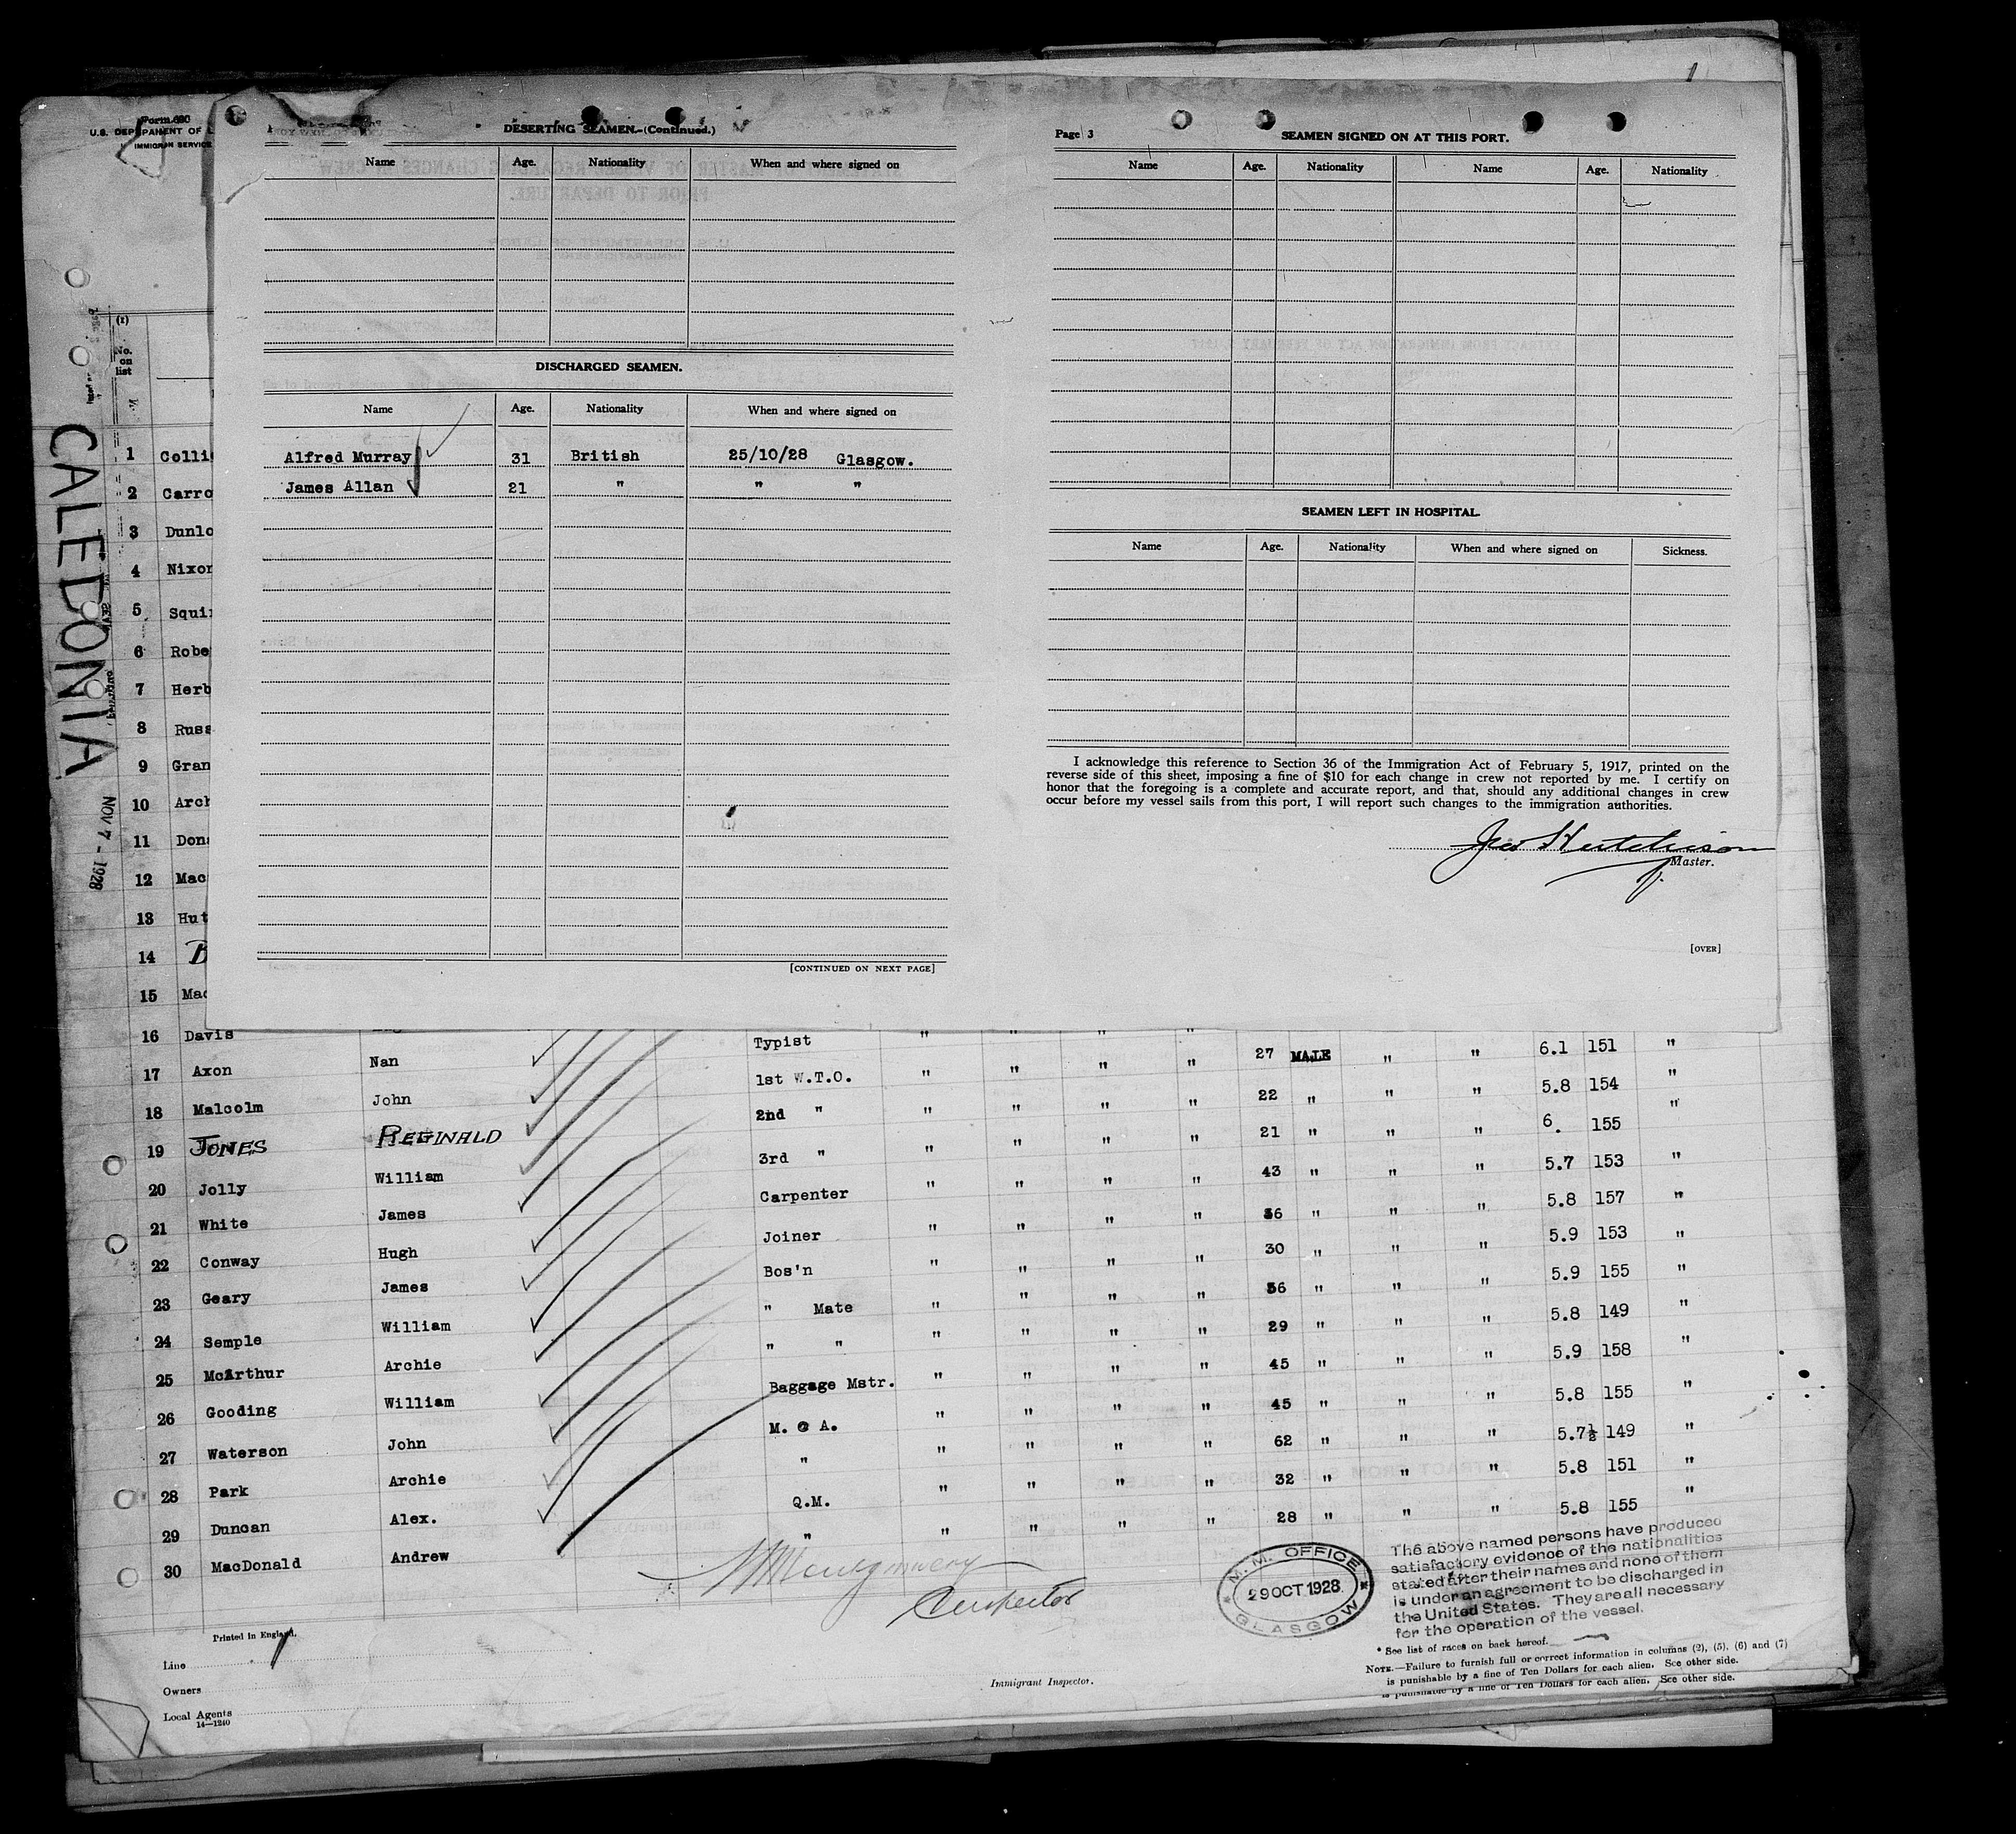 1
Form 680
U.S. DEPARTMENT OF L
IMMIGRATION SERVICE
(1)
No.
on
list
CALEDONIA
NOV 7 - 1928
DESERTING SEAMEN.-(Continued.)
Name Age. Nationality When and where signed on
DISCHARGED SEAMEN.
Name Age. Nationality When and where signed on
Alfred Murray 31 British 25/10/28 Glasgow.
James Allan 21 " " "
[CONTINUED ON NEXT PAGE]
Page 3 SEAMEN SIGNED ON AT THIS PORT.
Name Age. Nationality Name Age. Nationality
SEAMEN LEFT IN HOSPITAL.
Name Age. Nationality When and where signed on Sickness.
I acknowledge this reference to Section 36 of the Immigration Act of February 5, 1917, printed on the
reverse side of this sheet, imposing a fine of $10 for each change in crew not reported by me. I certify on
honor that the foregoing is a complete and accurate report, and that, should any additional changes in crew
occur before my vessel sails from this port, I will report such changes to the immigration authorities.
Hutchison
Master.
[OVER]
1 Colli
2 Carro
3 Dunlo
4 Nixon
5 Squi
6 Robe
7 Herb
8 Russ
9 Gran
10 Arch
11 Dona
12 Mac
13 Hut
14 B
15 Mac
16 Davis Typist " " " " 27 MALE " " 6.1 151 "
17 Axon Nan 1st W.T.O. " " " " 22 " " " 5.8 154 "
18 Malcolm John 2nd " " " " " 21 " " " 6. 155 "
19 JONES REGINALD 3rd " " " " " 43 " " " 5.7 153 "
20 Jolly William Carpenter " " " " 36 " " " 5.8 157 "
21 White James Joiner " " " " 30 " " " 5.9 153 "
22 Conway Hugh Bos'n " " " " 36 " " " 5.9 155 "
23 Geary James " Mate " " " " 29 " " " 5.8 149 "
24 Semple William " " " " " " 45 " " " 5.9 158 "
25 McArthur Archie Baggage Mstr. " " " " 45 " " " 5.8 155 "
26 Gooding William M. @ A. " " " " 62 " " " 5.7½ 149 "
27 Waterson John " " " " " 32 " " " 5.8 151 "
28 Park Archie Q.M. " " " " 28 " " " 5.8 155 "
29 Duncan Alex. " " " " "
30 MacDonald Andrew
Montgomery
Inspector
M. M. OFFICE
29 OCT 1928
GLASGOW
The above named persons have produced
satisfactory evidence of the nationalities
stated after their names and none of them
is under an agreement to be discharged in
the United States. They are all necessary
for the operation of the vessel.
Printed in England.
Line
Owners
Local Agents
14—1240
Immigrant Inspector.
* See list of races on back hereof.
NOTE.—Failure to furnish full or correct information in columns (2), (5), (6) and (7)
is punishable by a fine of Ten Dollars for each alien. See other side.
is punishable by a fine of Ten Dollars for each alien. See other side.